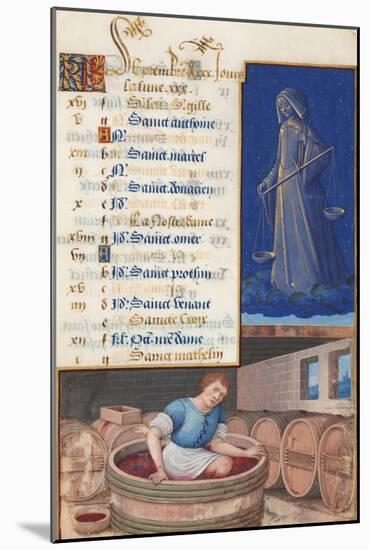 Septembre a xxx Jours
La lune xxx.
xvi f S. leu S. gille
v g Sainct anthoine
A N.
xiii b Sainct marcel
ii c N.
d Sainct donacien
x e Jd'.
f La nostre dame
xviii g Jd'. Sainct omer
vii A Jd'.
b Jd'. Sainct prothin
xv c Jd'.
d Jd'. Sainct venant
e Saincte Croix
f kl. Oct. nre dame
g Sainct mathelin